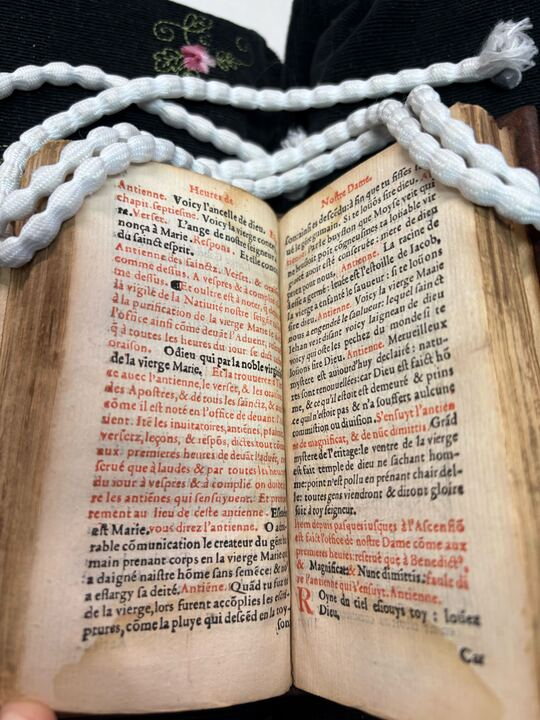 Heures de
Antienne. Voicy l'ancelle de dieu. En
chapit. septiesme. Voicy la vierge conce-
re. Verset. L'ange de nostre seigneur
nonça à Marie. Respons. Et elle conceut
du sainct esprit.
Antienne des sainctz. Verset, & oraison
comme dessus. A vespres & à complie
me dessus. Et oultre est à noter, que
la vigile de la Nativité nostre seigneur
à la purification de la vierge Marie
l'office ainsi cõme devãt l'Aduent,
q̃ à toutes les heures du iour se dit
oraison. O dieu qui par la noble virginité
de la vierge Marie. Et la trouuerez
ce auec l'antienne, le verset, & les orais
des Apostres, & de tous les sainctz, &
cõme il est noté en l'office de deuant l'
uent. Itẽ les inuitatoires, antiẽnes, psalmes
versetz, leçons, & respõs, dictes tout cõ
aux premieres heures de deuãt l'Aduẽt,
serué que à laudes & par toutes les heures
du iour à vespres & à complie on doit
re les antiẽnes qui s'ensuyuent. Et premie-
rement au lieu de ceste antienne.
est Marie. vous direz l'antienne. O
rable cõmunication le createur du gẽre
main prenant corps en la vierge Marie
a daigné naistre hõme sans semẽce: & no
a eslargy sa deité. Antiẽne. Quãd tu fuz
de la vierge, lors furent accõplies les escri-
ptures, cõme la pluye qui descẽd en la toy-
son
Nostre Dame.
sõ naissãt es descẽdu à fin que tu fisses
ué le gẽre humain. Si te loüõs ire dieu.
Par le buysson que Moyse veit qui
ne brusloit point, cõgneusmes ta loüable vir
gité auoir esté conseruée: mere de dieu
priez pour nous. Antienne. La racine de
Iesse a germé: leuée est l'estoille de Iacob,
la vierge a enfanté le sauueur: si te loüons
sire dieu. Antienne. Voicy la vierge Maaie
nous a engendré le sauueur: lequel sainct
Iehan veit disant voicy laigneau de dieu
voicy qui oste les pechez du monde: si te
loüons sire Dieu. Antienne. Merueilleux
mystere est aujourd'huy declairé: natu-
res sont renouuellées: car Dieu est faict hõ
me, & ce qu'il estoit est demeuré & prins
ce qu'il n'estoit pas & n'a souffert aulcune
commistion ou diuision. S'ensuyt l'antien
ne de magnificat, & de nũc dimittis. Grãd
mystere de l'eritage: le ventre de la vierge
est fait temple de dieu ne sachant hom-
me: point n'est pollu en prenant chair del-
le: toutes gens viendront & diront gloire
soit à toy seigneur.
Item depuis pasques iusques à l'Ascensiõ
est faict l'office de nostre Dame cõme aux
premieres heures: reserué que à Benedict⁹,
& Magnificat & Nunc dimittis. fault di
re l'antienne qui s'ensuyt. Antienne.
ROyne du ciel esiouys toy: loüez
Dieu,
Car